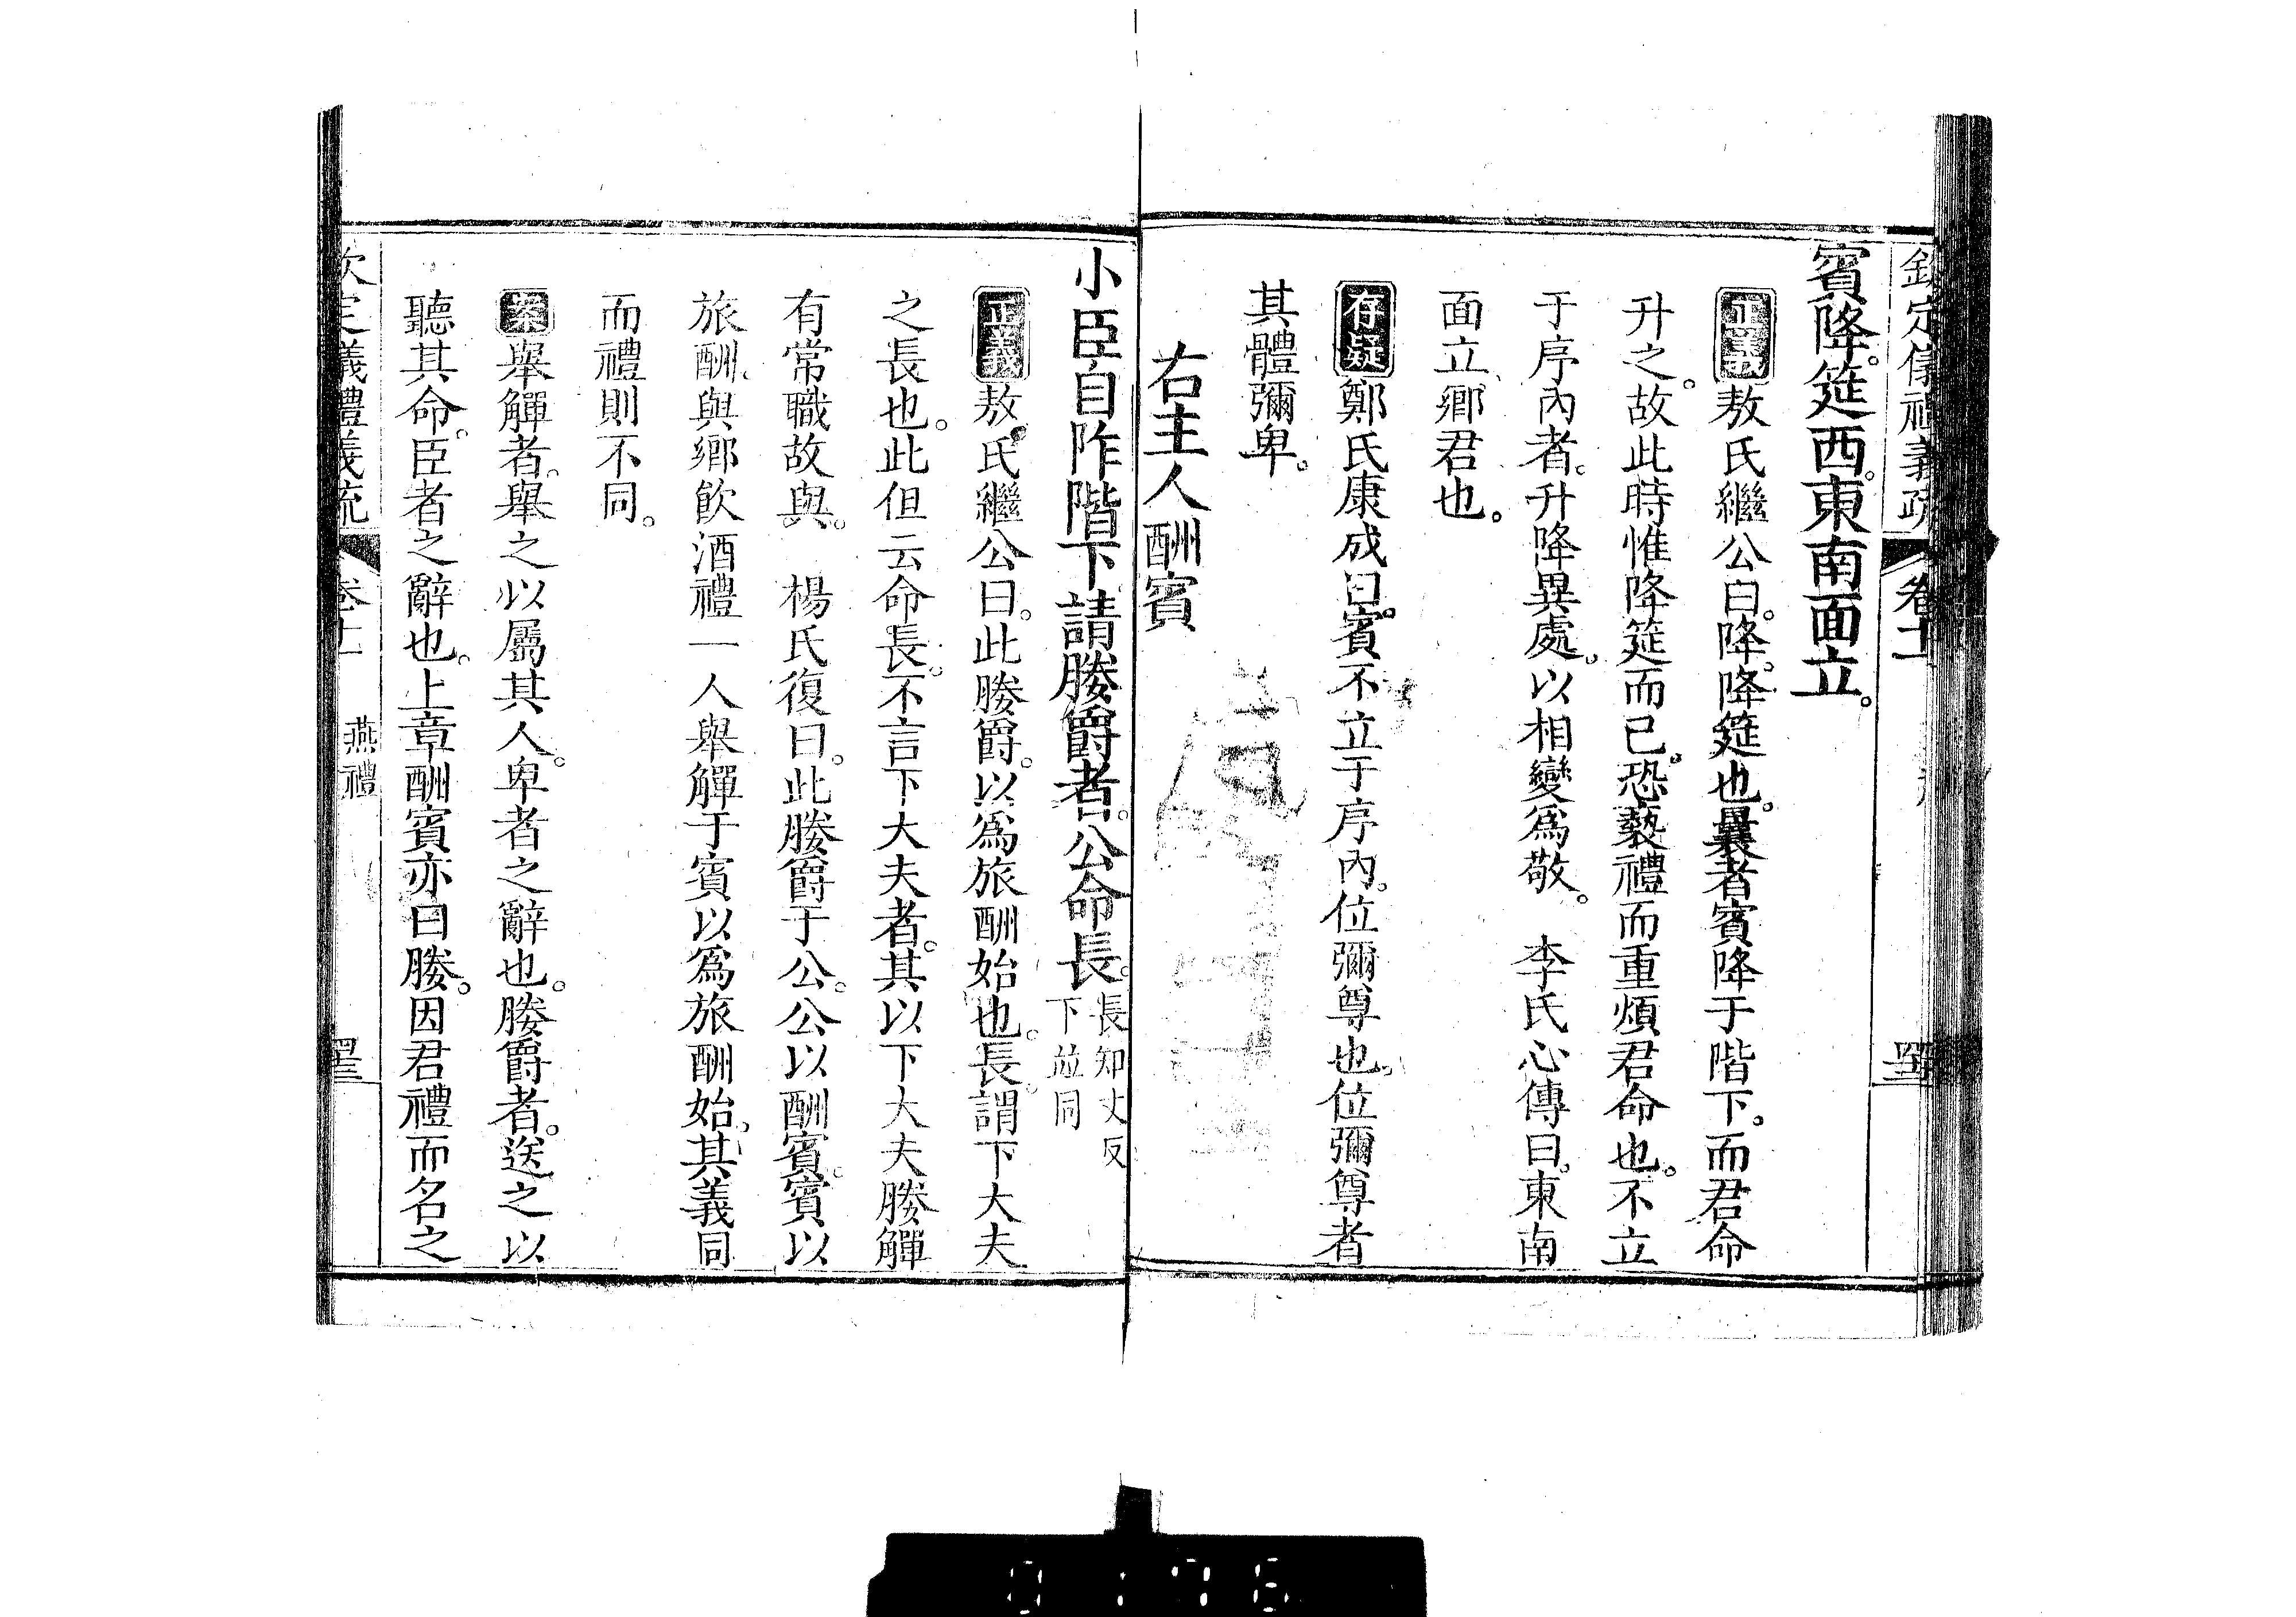 欽定儀禮義疏 卷十一
賓降筵西東南面立。
正義敖氏繼公曰。降。降筵也。曩者賓降于階下。而君命
升之。故此時惟降筵而已。恐褻禮而重煩君命也。不立
于序內者。升降異處。以相變爲敬。 李氏心傳曰。東南
面立。鄉君也。
存疑鄭氏康成曰。賓不立于序內。位彌尊也。位彌尊者
其體彌卑。
右主人酬賓
小臣自阼階下請媵爵者。公命長。長知丈反
下並同
正義敖氏繼公曰。此媵爵。以爲旅酬始也。長。謂下大夫
之長也。此但云命長。不言下大夫者。其以下大夫媵觶
有常職故與。 楊氏復曰。此媵爵于公。公以酬賓。賓以
旅酬。與鄉飲酒禮一人舉觶于賓以爲旅酬始。其義同
而禮則不同。
案舉觶者。舉之以屬其人。卑者之辭也。媵爵者。送之以
聽其命。臣者之辭也。上章酬賓亦曰媵。因君禮而名之
欽定儀禮義疏 卷十一 燕禮
0176